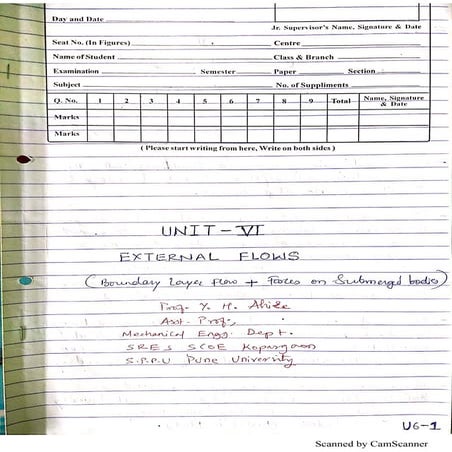 Day and Date
Jr. Supervisor's Name, Signature & Date
Seat No. (In Figures) Centre
Name of Student Class & Branch
Examination Semester Paper Section
Subject No. of Suppliments
Q. No. 1 2 3 4 5 6 7 8 9 Total Name, Signature & Date
Marks
Marks
( Please start writing from here, Write on both sides )
UNIT-VI
EXTERNAL FLOWS
(Boundary layer flow + Forces on Submerged bodies)
Prof. Y. H. Ahire
Asst. Prof.,
Mechanical Engg. Dept.
SRES SCOE Kopargaon
S.P.P.U Pune University
U6-1
Scanned by CamScanner